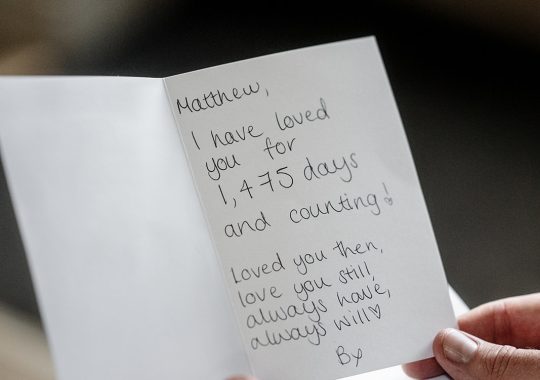 Matthew,
I have loved
you for
1,475 days
and counting!
Loved you then,
love you still,
always have,
always will♡
Bx